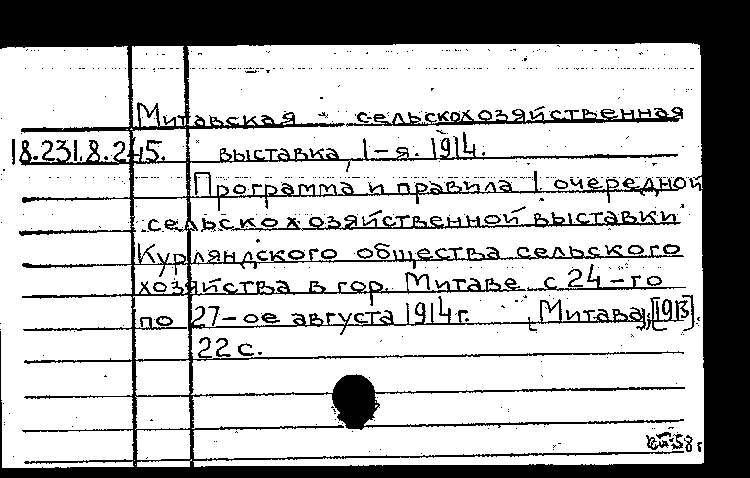 Митавская - сельскохозяйственная
18.231.8.245. выставка, 1-я. 1914.
Программа и правила 1 очередной
сельскохозяйственной выставки
Курляндского общества сельского
хозяйства в гор. Митаве с 24-го
по 27-ое августа 1914 г. [Митава], [1913].
22 с.